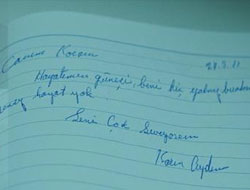 Canım Kocam
28.3.11
Hayatımın güneşi, beni hiç yalnız bırakma
hayat yok.
Seni Çok Seviyorum
Karın Aydın